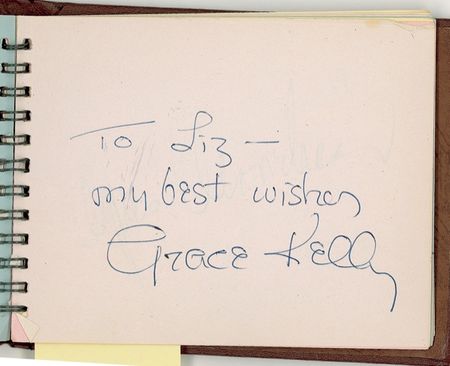 To Liz —
my best wishes
Grace Kelly